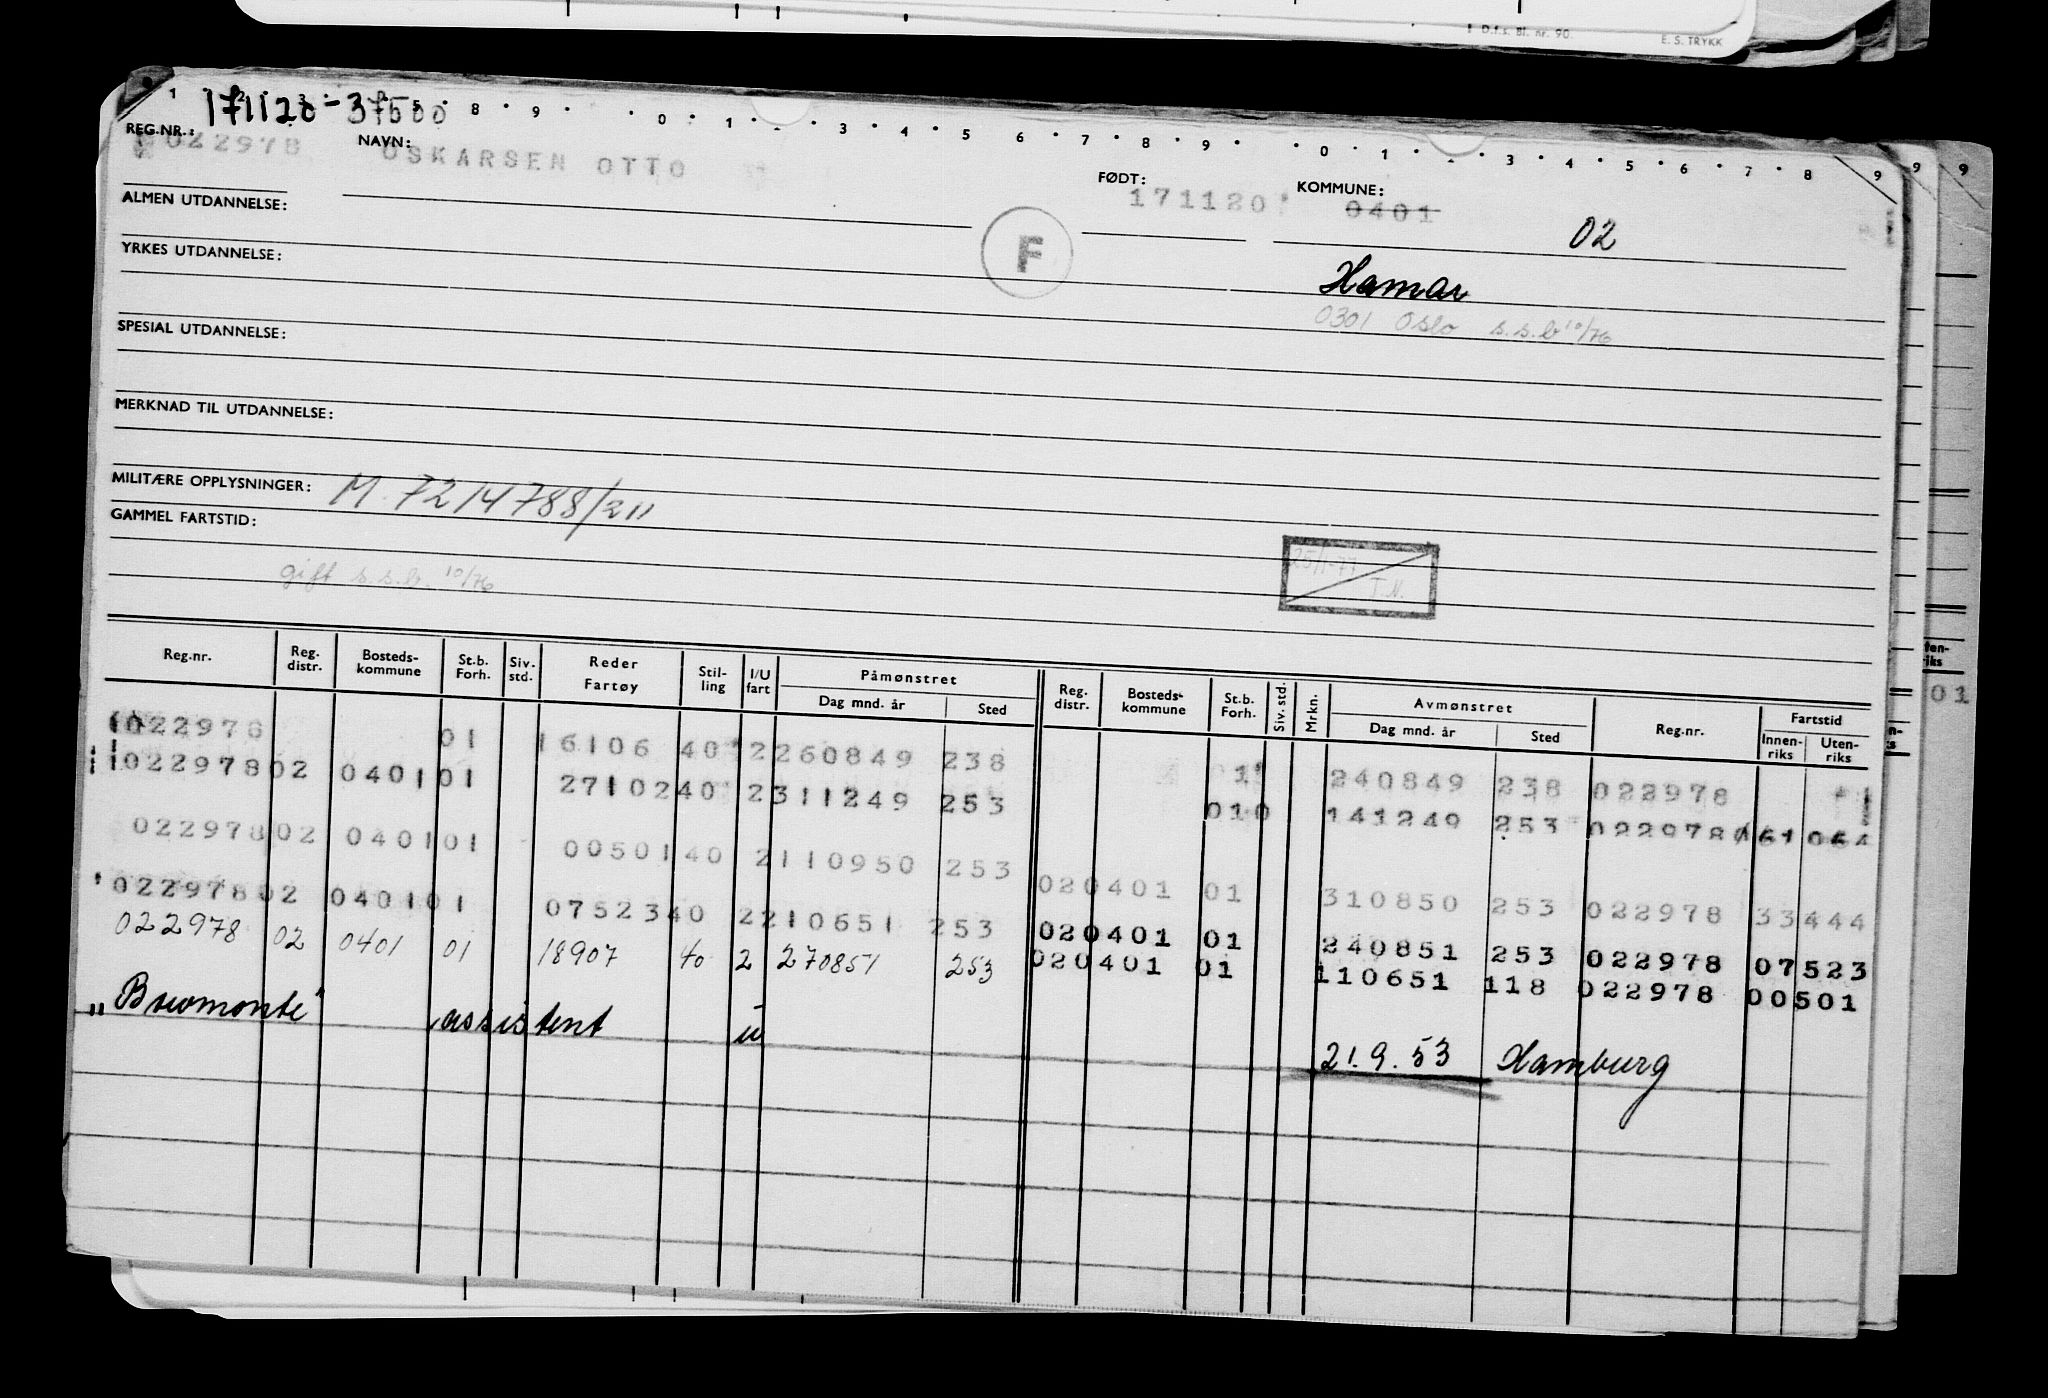 D.f.s. Bl. nr. 90. E. S. TRYKK
171120-37500
REG.NR.: 022978 NAVN: OSKARSEN OTTO FØDT: 171120 KOMMUNE: 0401
ALMEN UTDANNELSE: F 02
YRKES UTDANNELSE: Hamar
0301 Oslo s.s.b 10/76
SPESIAL UTDANNELSE:
MERKNAD TIL UTDANNELSE:
MILITÆRE OPPLYSNINGER: M. 7214788/211
GAMMEL FARTSTID:
gift s.s.b. 10/76
25/1-77
T.N.
Reg.nr. Reg. distr. Bosteds- kommune St.b. Forh. Siv. std. Reder Fartøy Stil- ling I/U fart Påmønstret Dag mnd. år Sted Reg. distr. Bosteds- kommune St.b. Forh. Siv. std. Mrkn. Avmønstret Dag mnd. år Sted Reg.nr. Fartstid Innen- riks Uten- riks
022978 01 16106 40 2 260849 238 1 240849 238 022978
022978 02 0401 01 27102 40 2 311249 253 010 141249 253 022978 61 064
022978 02 0401 01 00501 40 2 110950 253 02 0401 01 310850 253 022978 33 444
022978 02 0401 01 07523 40 2 210651 253 02 0401 01 240851 253 022978 07523
022978 02 0401 01 18907 40 2 270851 253 02 0401 01 110651 118 022978 00501
"Bromonte" assistent u 21.9.53 Hamburg